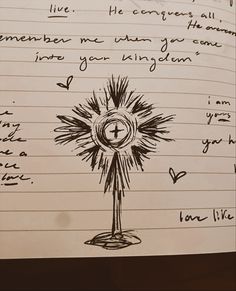 live. He conquers all,
He overcom
emember me when you come
into your kingdom"
i am
yours
you h
me a
love.
love like